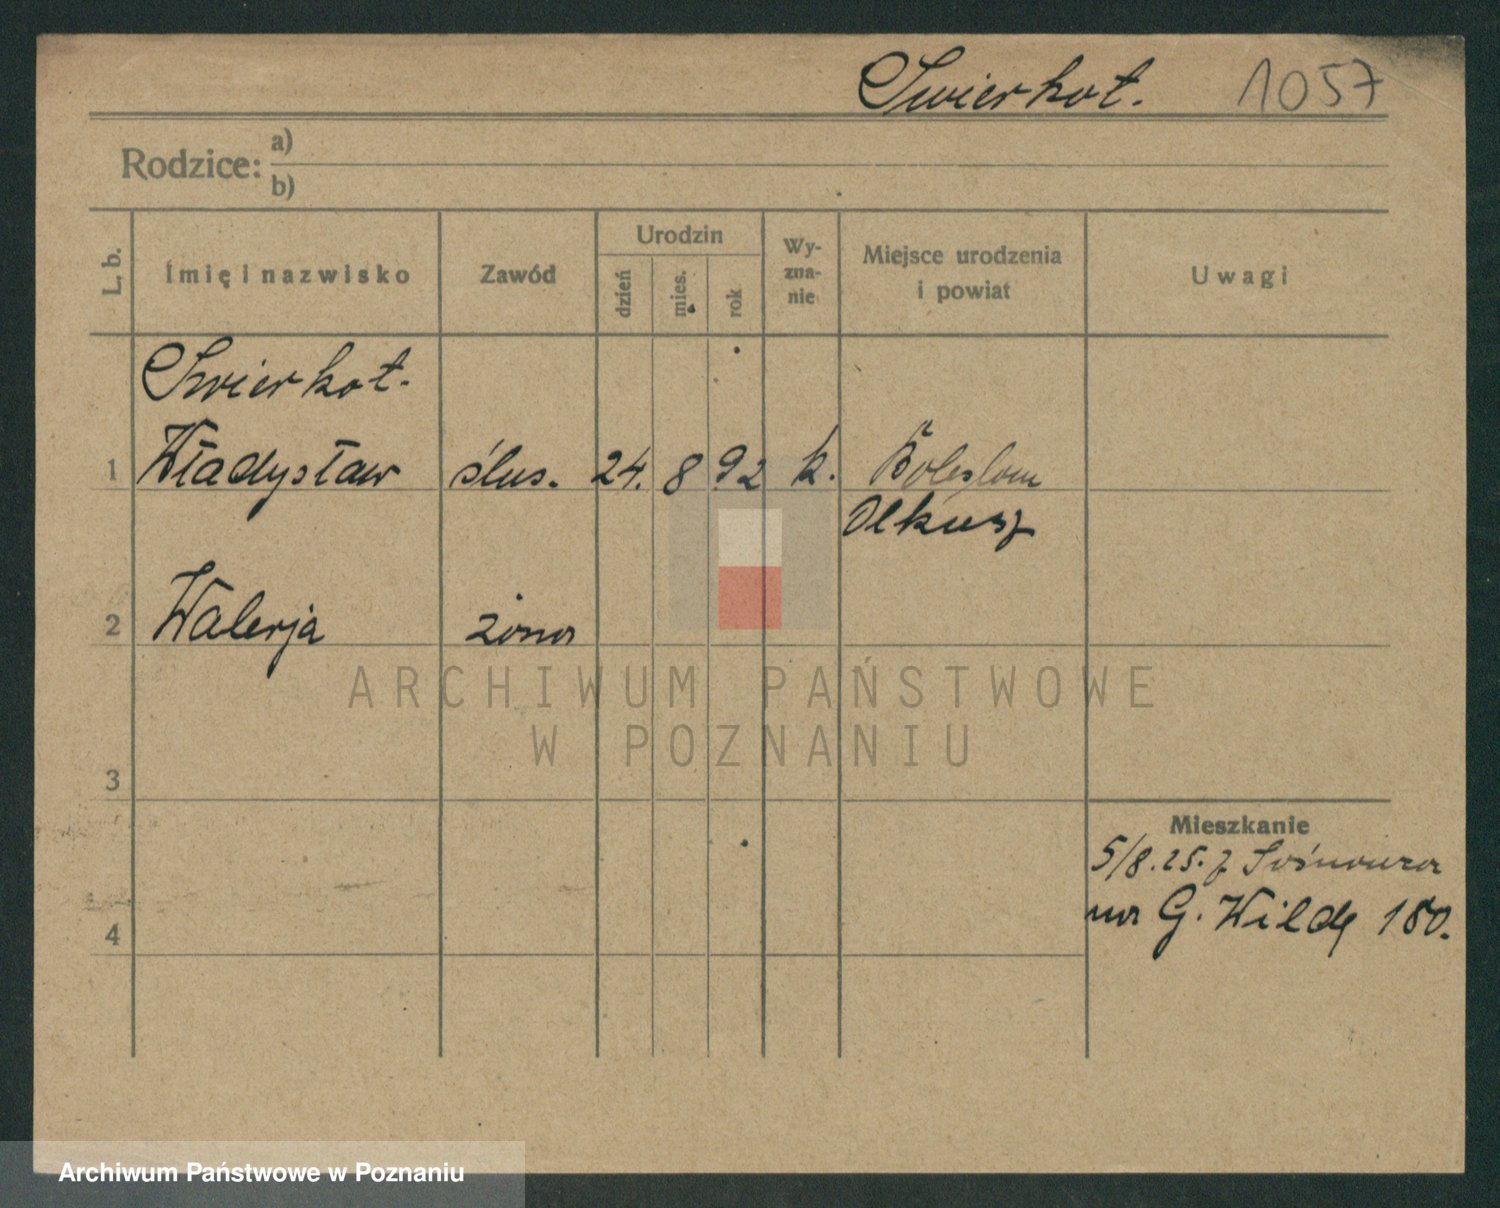 Swierkot. 1057
Rodzice: a)
b)
L. b. Imię i nazwisko Zawód Urodzin dzień mies. rok Wyznanie Miejsce urodzenia i powiat Uwagi
Swierkot.
1 Władysław ślus. 24. 8 92 k. Bolesław
Olkusz
2 Walerja żona
ARCHIWUM PAŃSTWOWE
W POZNANIU
3
Mieszkanie
5/8.25. z Sosnowca
4 na G. Wildę 180.
Archiwum Państwowe w Poznaniu